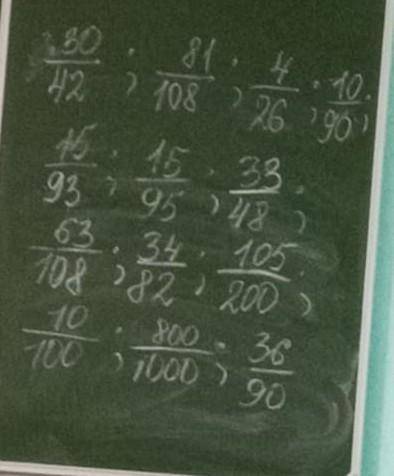 30/42 ; 81/108 ; 4/26 ; 10/90 ;
15/93 ; 15/95 ; 33/48 ;
63/108 ; 34/82 ; 105/200 ;
10/100 ; 800/1000 ; 36/90